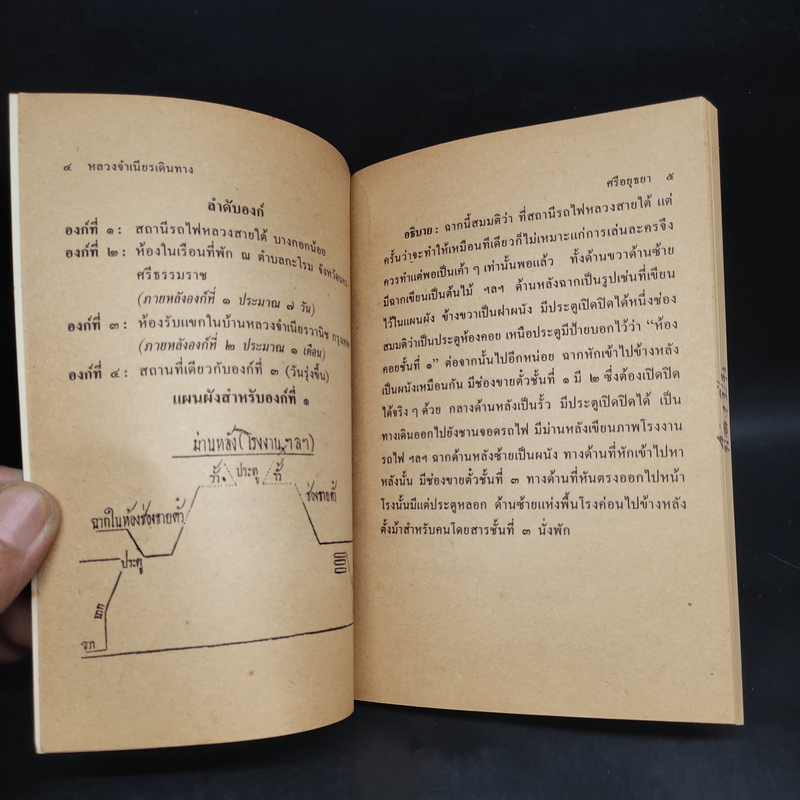 ๔ หลวงจำเนียรเดินทาง
ลำดับองก์
องก์ที่ ๑: สถานีรถไฟหลวงสายใต้ บางกอกน้อย
องก์ที่ ๒: ห้องในเรือนที่พัก ณ ตำบลกะโรม จังหวัด
ศรีธรรมราช
(ภายหลังองก์ที่ ๑ ประมาณ ๗ วัน)
องก์ที่ ๓: ห้องรับแขกในบ้านหลวงจำเนียรวานิช
(ภายหลังองก์ที่ ๒ ประมาณ ๑ เดือน)
องก์ที่ ๔: สถานที่เดียวกับองก์ที่ ๓ (วันรุ่งขึ้น)
แผนผังสำหรับองก์ที่ ๑
ม่านหลัง(โรงงาน ฯลฯ)
รั้ว ประตู รั้ว
ช่องขายตั๋ว
ฉากในห้องช่องขายตั๋ว
ประตู
ฉาก
ศรีอยุธยา ๕
อธิบาย: ฉากนี้สมมติว่า ที่สถานีรถไฟหลวงสายใต้ แต่
ครั้นว่าจะทำให้เหมือนทีเดียวก็ไม่เหมาะแก่การเล่นละครจึง
ควรทำแต่พอเป็นเค้า ๆ เท่านั้นพอแล้ว ทั้งด้านขวาด้านซ้าย
มีฉากเขียนเป็นต้นไม้ ฯลฯ ด้านหลังฉากเป็นรูปเช่นที่เขียน
ไว้ในแผนผัง ข้างขวาเป็นฝาผนัง มีประตูเปิดปิดได้หนึ่งช่อง
สมมติว่าเป็นประตูห้องคอย เหนือประตูมีป้ายบอกไว้ว่า “ห้อง
คอยชั้นที่ ๑” ต่อจากนั้นไปอีกหน่อย ฉากหักเข้าไปข้างหลัง
เป็นผนังเหมือนกัน มีช่องขายตั๋วชั้นที่ ๑ มี ๒ ซึ่งต้องเปิดปิด
ได้จริง ๆ ด้วย กลางด้านหลังเป็นรั้ว มีประตูเปิดปิดได้ เป็น
ทางเดินออกไปยังชานจอดรถไฟ มีม่านหลังเขียนภาพโรงงาน
รถไฟ ฯลฯ ฉากด้านหลังซ้ายเป็นผนัง ทางด้านที่หักเข้าไปหา
หลังนั้น มีช่องขายตั๋วชั้นที่ ๓ ทางด้านที่หันตรงออกไปหน้า
โรงนั้นมีแต่ประตูหลอก ด้านซ้ายแห่งพื้นโรงค่อนไปข้างหลัง
ตั้งม้าสำหรับคนโดยสารชั้นที่ ๓ นั่งพัก